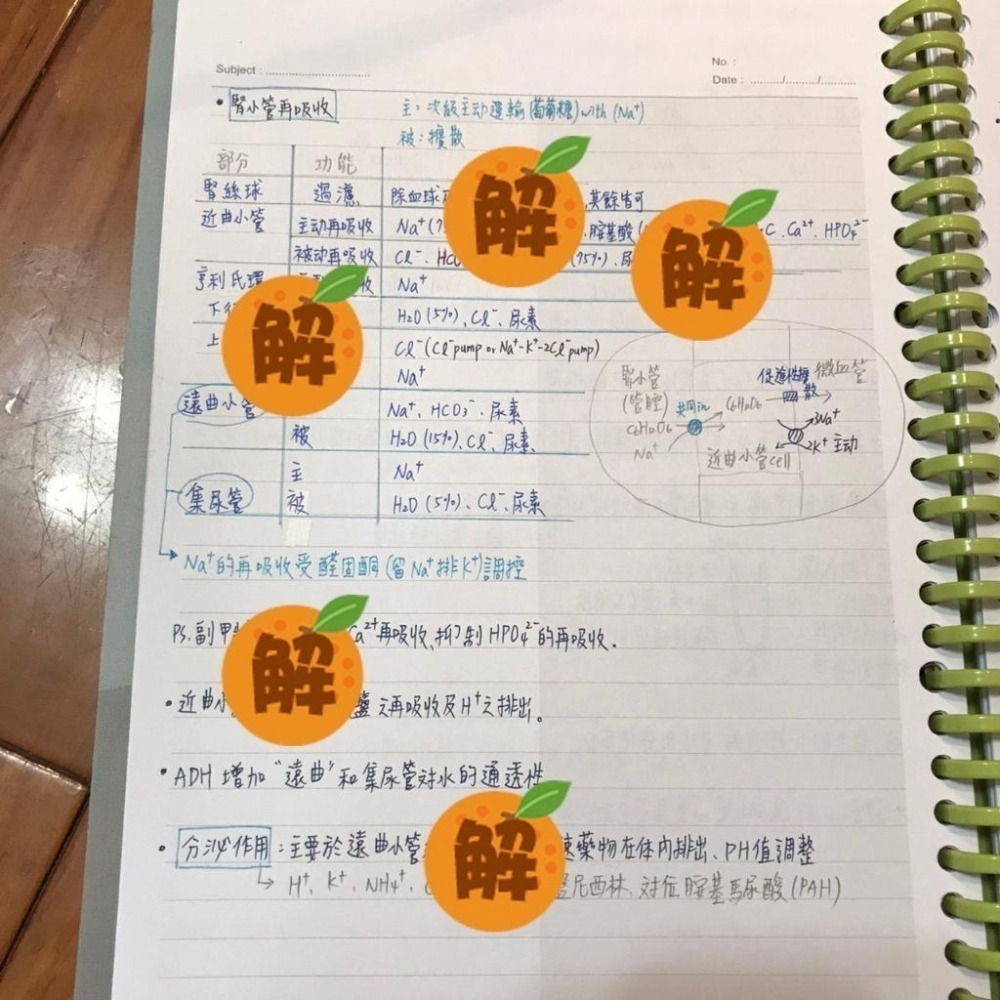 Subject :
No. :
Date : / /
• 腎小管再吸收
主：次級主動運輸(葡萄糖) with (Na⁺)
被：擴散
部分 功能
腎絲球 過濾 除血球 其餘皆可
近曲小管 主動再吸收 Na⁺ 胺基酸 C. Ca²⁺. HPO₄²⁻
被动再吸收 Cl⁻. (75%)
亨利氏環 收 Na⁺
H₂O (5%)、Cl⁻、尿素
Cl⁻(Cl⁻pump or Na⁺-K⁺-2Cl⁻pump)
Na⁺
遠曲小管 Na⁺, HCO₃⁻. 尿素
被 H₂O (15%)、Cl⁻、尿素
主 Na⁺
集尿管 被 H₂O (5%)、Cl⁻、尿素
腎小管
(管腔)
C₆H₁₂O₆
Na⁺
共同in
C₆H₁₂O₆
促進性擴散
微血管
3Na⁺
2K⁺ 主动
近曲小管cell
Na⁺的再吸收受醛固酮(留Na⁺排K⁺)調控
Ps. 副甲 Ca²⁺再吸收、抑制HPO₄²⁻的再吸收.
• 近曲小 鹽之再吸收及H⁺之排出。
• ADH 增加"遠曲"和集尿管对水的通透性
• 分泌作用：主要於遠曲小管 速藥物在体内排出、PH值調整
H⁺. K⁺. NH₄⁺. 尼西林. 対位胺基馬尿酸(PAH)
解
解
解
解
解